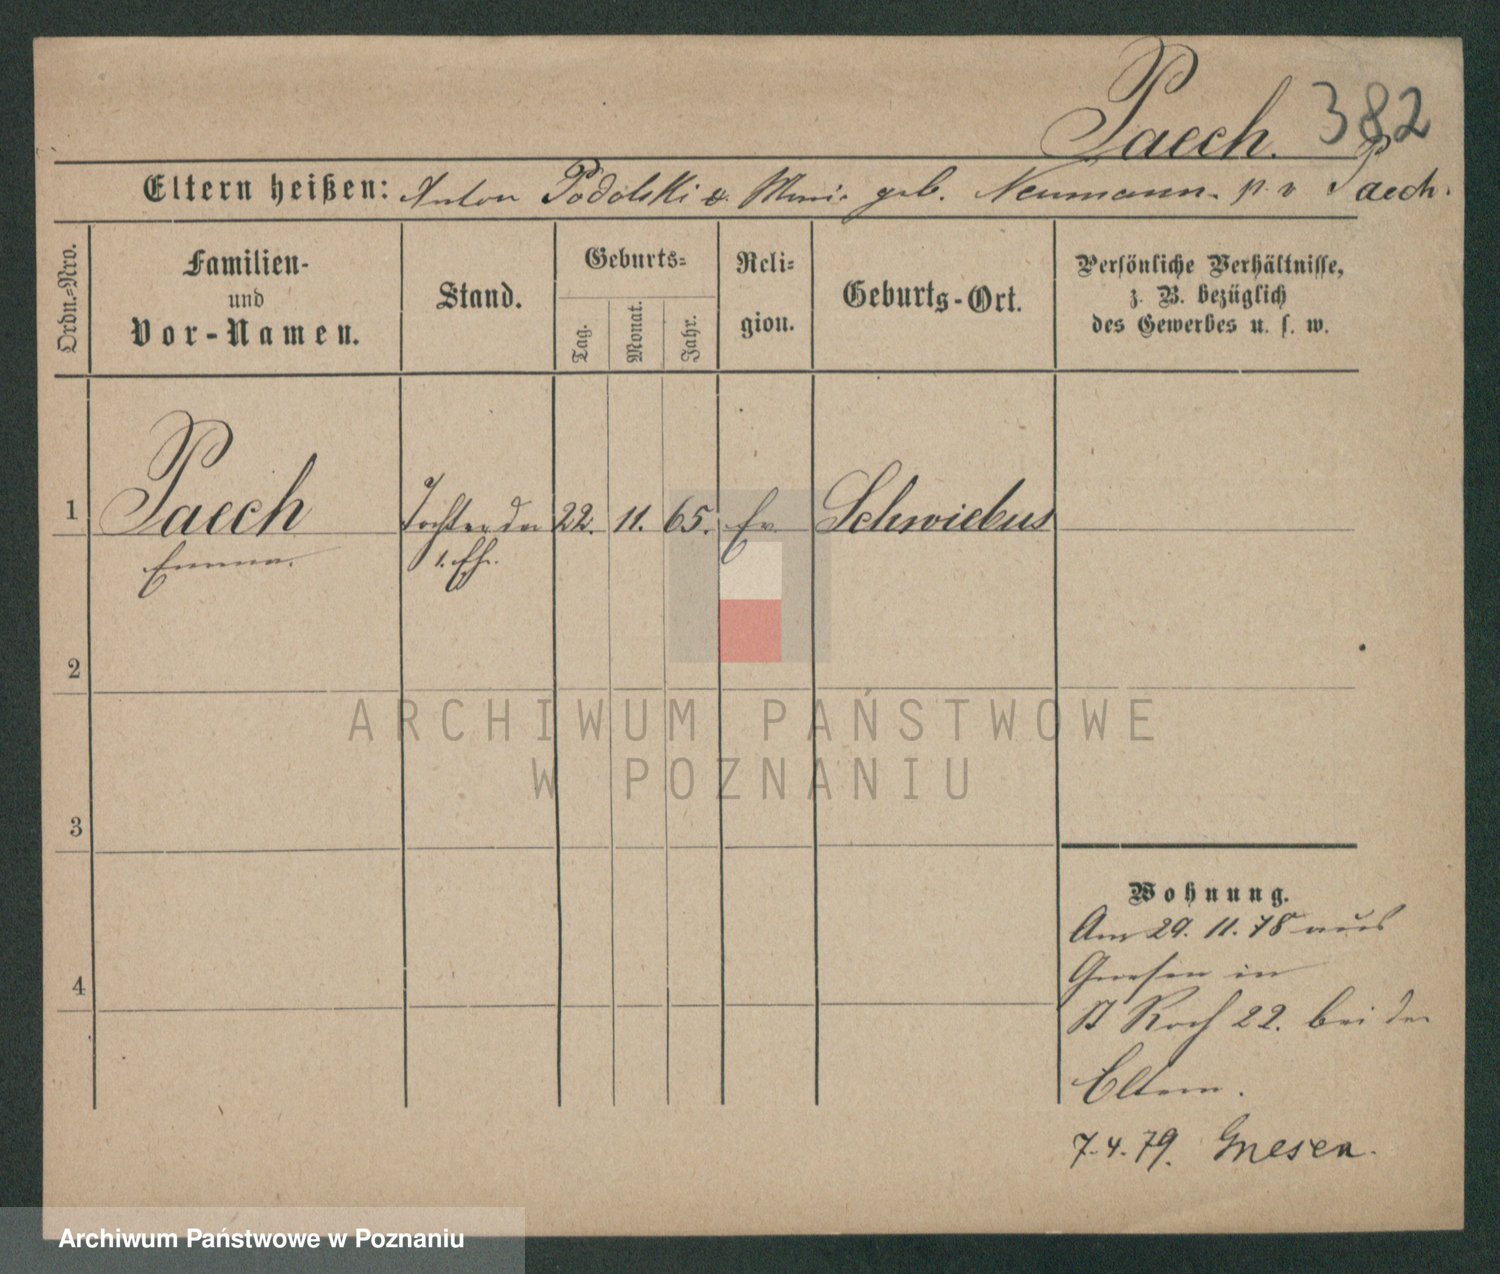 Paech. 382
Eltern heißen: Anton Podolski & Marie geb. Neumann p. v Paech.
Ordn.=Nro.
Familien-
und
Vor-Namen.
Stand.
Geburts=
Tag.
Monat.
Jahr.
Reli=
gion.
Geburts-Ort.
Persönliche Verhältnisse,
z. B. bezüglich
des Gewerbes u. s. w.
1 Paech Tochter der 22. 11. 65. Ev. Schwiebus
Emma. 1. Ehe.
2
3
4
Wohnung.
Am 29. 11. 78 aus
Gnesen in
St Roch 22. bei den
Eltern.
7.4.79. Gnesen.
ARCHIWUM PAŃSTWOWE
W POZNANIU
Archiwum Państwowe w Poznaniu